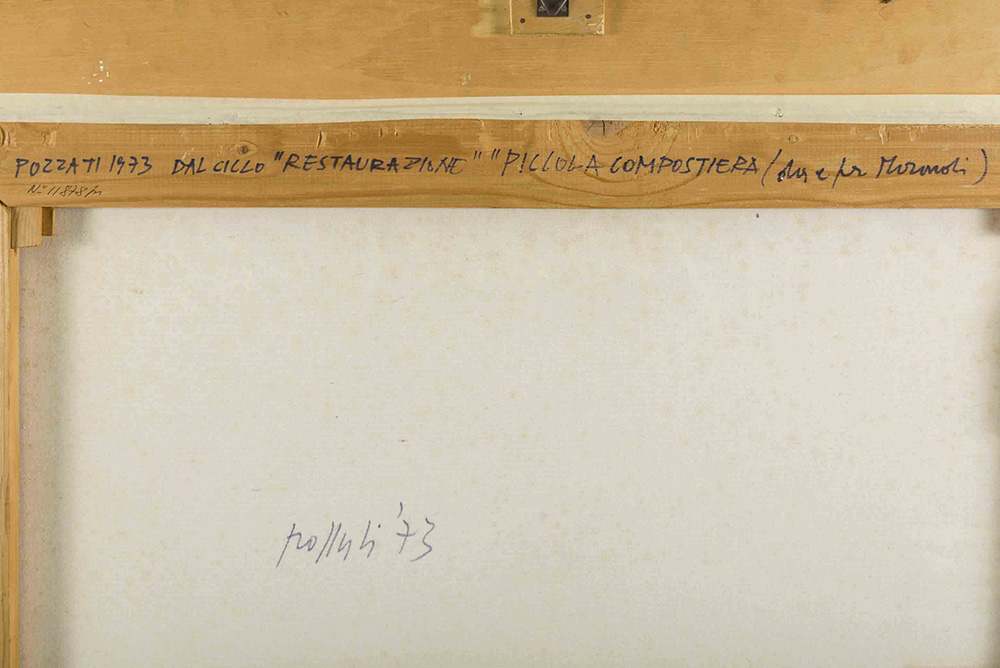 POZZATI 1973 DAL CICLO "RESTAURAZIONE" "PICCOLA COMPOSTIERA (da e per Morandi)
N° 11878/1
pozzati '73